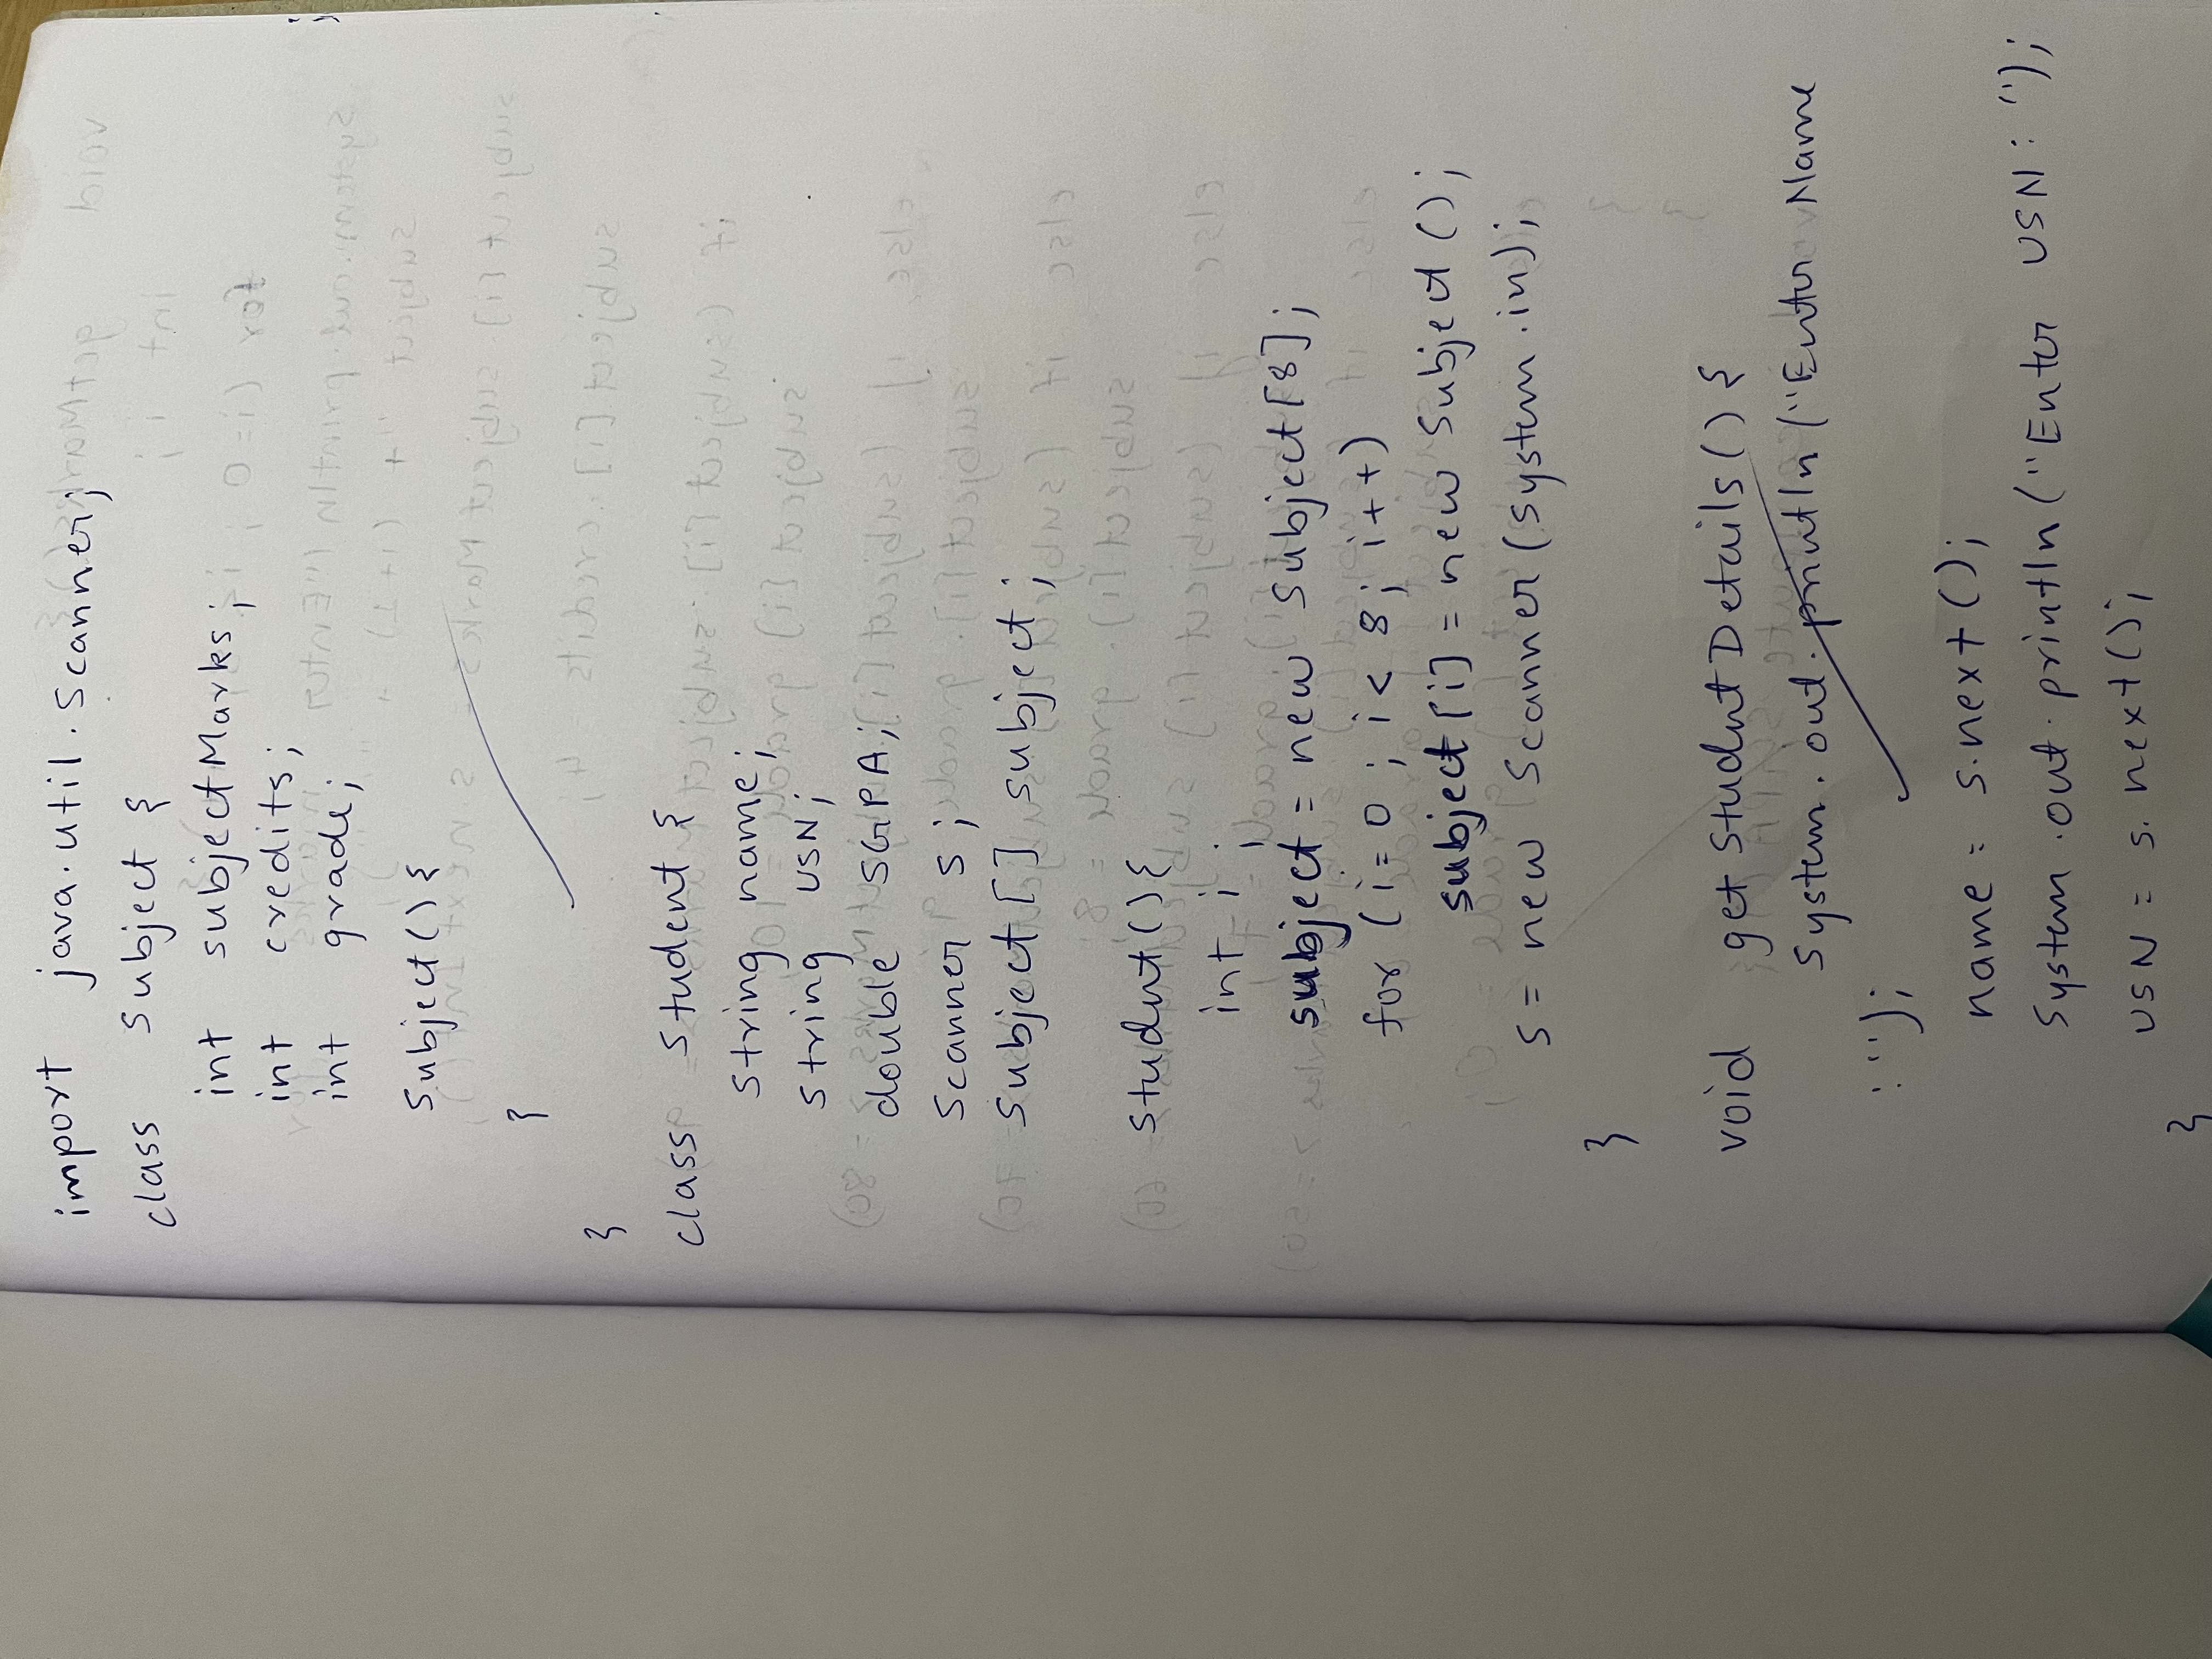 import java.util.Scanner;
class Subject {
int subjectMarks;
int credits;
int grade;
Subject(){
}
}
class Student {
String name;
String USN;
double SGPA;
Scanner s;
Subject[] subject;
Student(){
int i;
subject = new Subject[8];
for (i=0 ; i< 8; i++)
subject[i] = new Subject();
s = new Scanner(System.in);
}
void getStudentDetails(){
System.out.println("Enter Name
:");
name = s.next();
System.out.println("Enter USN: ");
USN = s.next();
}